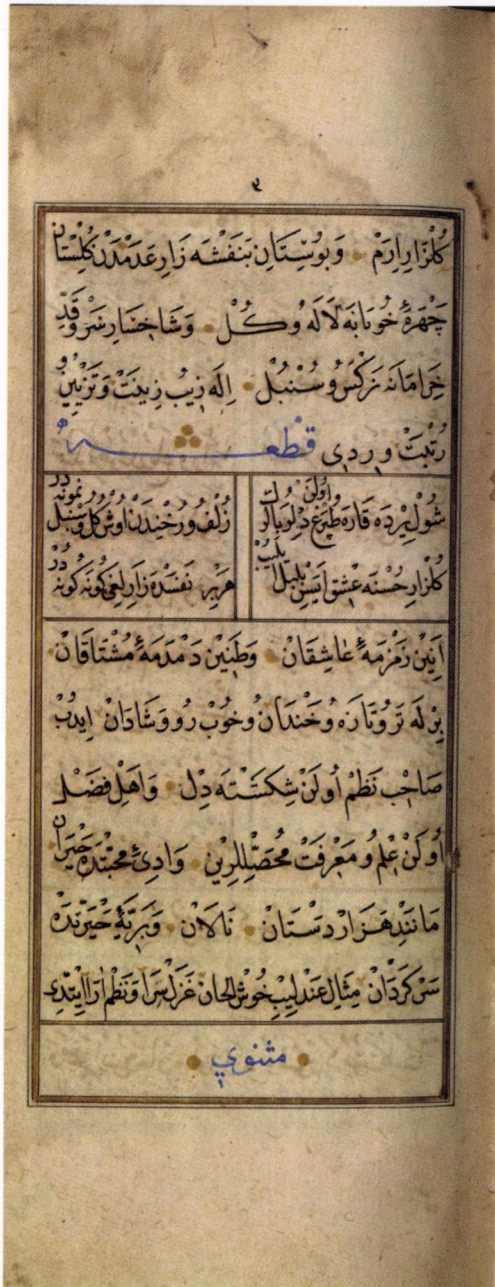 ٩
كُلْزَارِ اِرَمْ وَبُوسْتَانِ بَنَفْشَه زَارِ عَدَمْدَنْ كُلِسْتَانِ
چَهْرَهٔ خُوبَانَه لَالَه وُ كُلْ وَشَاخْسَارِ سَرْوِ قَدِّ
خِرَامَانَه نَرْكِسُ وُ سُنْبُلْ اِلَه زِيبُ زِينَتْ وَ تَزْيِينُ وُ
رُتْبَتْ وِردِى قطعه
شُولْ يِرْدَه قَارَه طُپْرَغْ دِلبر
زُلْفُ وُ رُخِيندَنْ اُوشْ كُلُ وُ سُنْبُلْ نُمُونَه دُرْ
كُلْزَارِ حُسْنِنَه عِشْقْ بُلْبُلْ
هَرْ بِرْ نَفَسْدَه زَارِلِغِى كُونَه كُونَه دُرْ
اَنِينِ زَمْزَمَهٔ عَاشِقَانْ وَطَنِينِ دَمْدَمَهٔ مُشْتَاقَانْ
بِرْلَه تَرُ وتَازَه وُ خَنْدَانْ وُ خُوبْ رُو وَ شَادَانْ اِيدُبْ
صَاحِبِ نَظْمْ اُولَنْ شِكَسْتَه دِلْ وَاَهْلِ فَضْلْ
اُولَنْ عِلْمُ و مَعْرِفَتْ مُحَصِّلْلَرِينْ وَادِىِٔ مِحْنَتْدَه حَيْرَانْ
مَانَنْدِ هَزَارْ دَسْتَانْ نَالَانْ وَبَرِيَّهِٔ حَيْرَتْدَه
سَرْكَرْدَانْ مِثَالِ عَنْدَلِيبِ خُوشْ اَلحَانْ غَزَلْ سَرَا وَ نَظْمْ اٰرَا اِيتْدِى
مثنوي